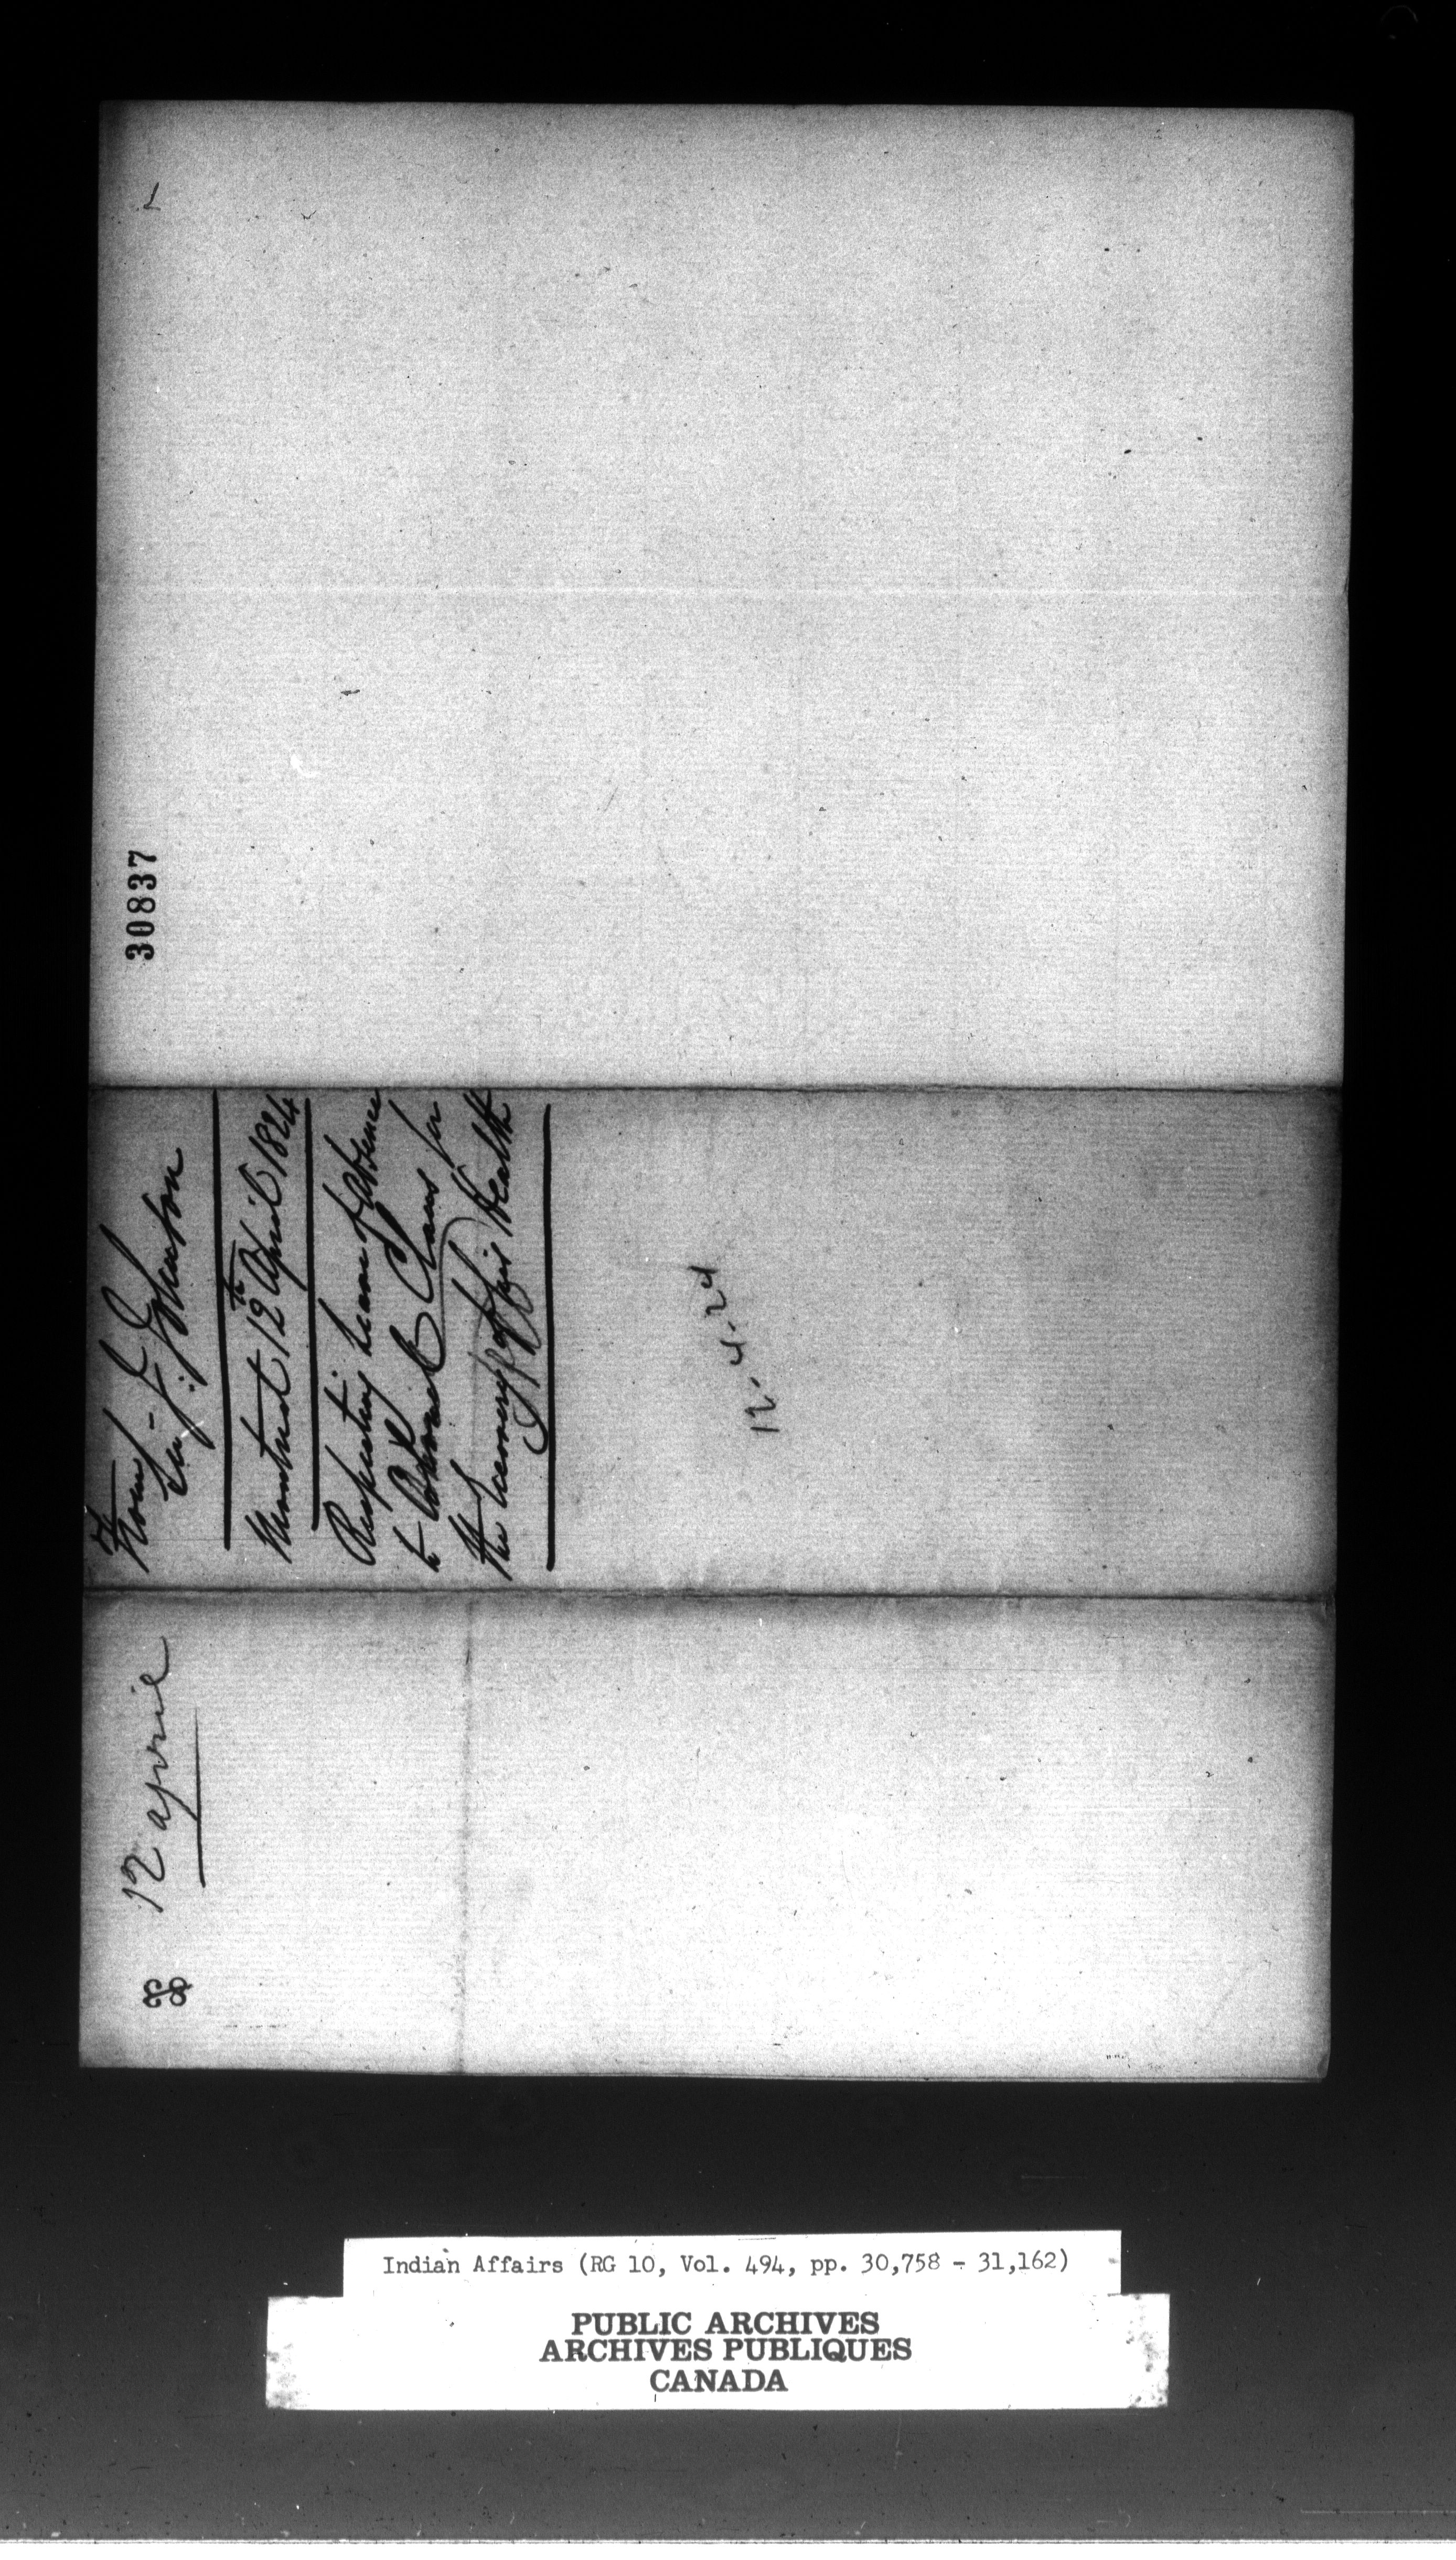 30837
From
Sir J. Johnson
Montreal 12th April 1824
Respecting leave of Absence
to Colonel Claus for
the recovery of his Health
12-4-24
12 april
Indian Affairs (RG 10, Vol. 494, pp. 30,758 - 31,162)
PUBLIC ARCHIVES
ARCHIVES PUBLIQUES
CANADA